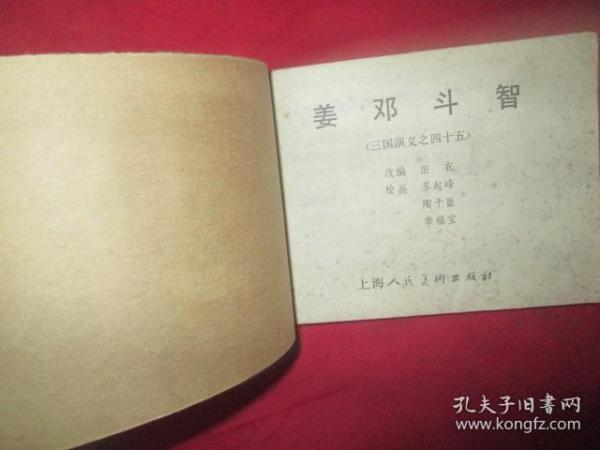 姜邓斗智
(三国演义之四十五)
改编 田衣
绘画 苏起峰
陶干臣
李福宝
上海人民美術出版社
孔夫子旧書网
www.kongfz.com